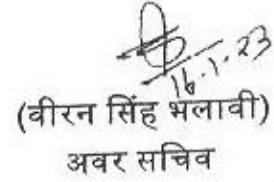 16.1.23
(वीरन सिंह भलावी)
अवर सचिव